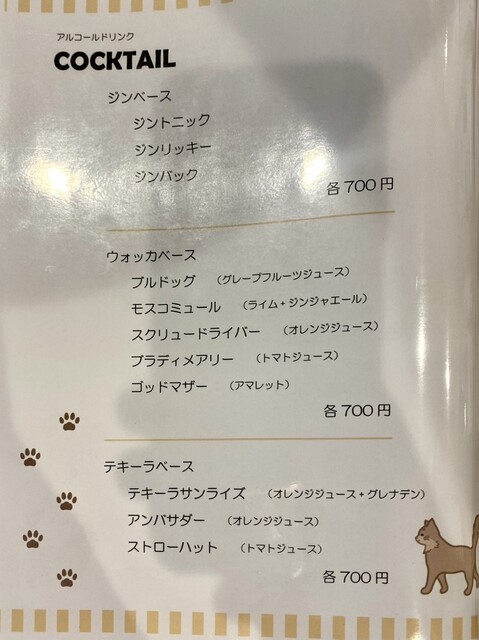 アルコールドリンク
COCKTAIL
ジンベース
ジントニック
ジンリッキー
ジンバック
各700円
ウォッカベース
ブルドッグ （グレープフルーツジュース）
モスコミュール （ライム+ジンジャエール）
スクリュードライバー （オレンジジュース）
ブラディメアリー （トマトジュース）
ゴッドマザー （アマレット）
各700円
テキーラベース
テキーラサンライズ （オレンジジュース+グレナデン）
アンバサダー （オレンジジュース）
ストローハット （トマトジュース）
各700円